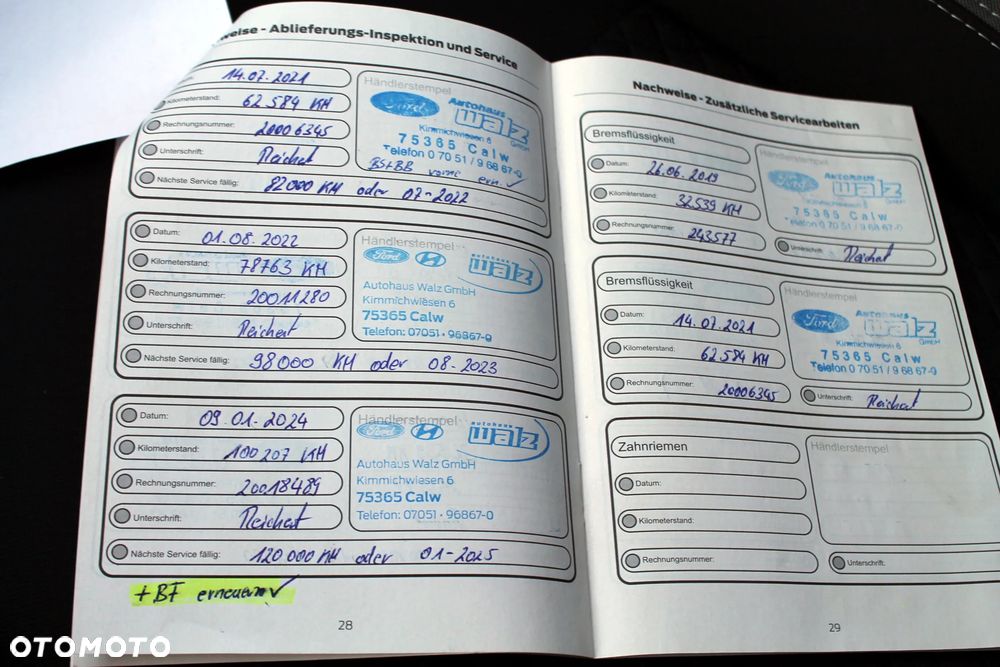 weise - Ablieferungs-Inspektion und Service
14.07.2021
Kilometerstand: 62 584 KM
Rechnungsnummer: 20006345
Unterschrift: Reichert
Nächste Service fällig: 82000 KM oder 07-2022
Händlerstempel
Ford
Autohaus
walz
GmbH
Kimmichwiesen 6
75365 Calw
Telefon 0 70 51 / 9 68 67-0
BS+BB vorne ern. ✓
Datum: 01.08.2022
Kilometerstand: 78763 KM
Rechnungsnummer: 20011280
Unterschrift: Reichert
Nächste Service fällig: 98000 KM oder 08-2023
Händlerstempel
Ford
autohaus
walz
Autohaus Walz GmbH
Kimmichwiesen 6
75365 Calw
Telefon: 07051 - 96867-0
Datum: 09.01-2024
Kilometerstand: 100 207 KM
Rechnungsnummer: 20018489
Unterschrift: Reichert
Nächste Service fällig: 120 000 KM oder 01-2025
Händlerstempel
Ford
autohaus
walz
Autohaus Walz GmbH
Kimmichwiesen 6
75365 Calw
Telefon: 07051 - 96867-0
+BF erneuern ✓
28
Nachweise - Zusätzliche Servicearbeiten
Bremsflüssigkeit
Datum: 26.06.2019
Kilometerstand: 32539 KM
Rechnungsnummer: 243577
Händlerstempel
Ford
Autohaus
walz
GmbH
Kimmichwiesen 6
75365 Calw
Telefon 0 70 51 / 9 68 67-0
Unterschrift: Reichert
Bremsflüssigkeit
Datum: 14.07.2021
Kilometerstand: 62 584 KM
Rechnungsnummer: 20006345
Händlerstempel
Ford
Autohaus
walz
GmbH
Kimmichwiesen 6
75365 Calw
Telefon 0 70 51 / 9 68 67-0
Unterschrift: Reichert
Zahnriemen
Datum:
Kilometerstand:
Rechnungsnummer:
Händlerstempel
Unterschrift:
29
OTOMOTO